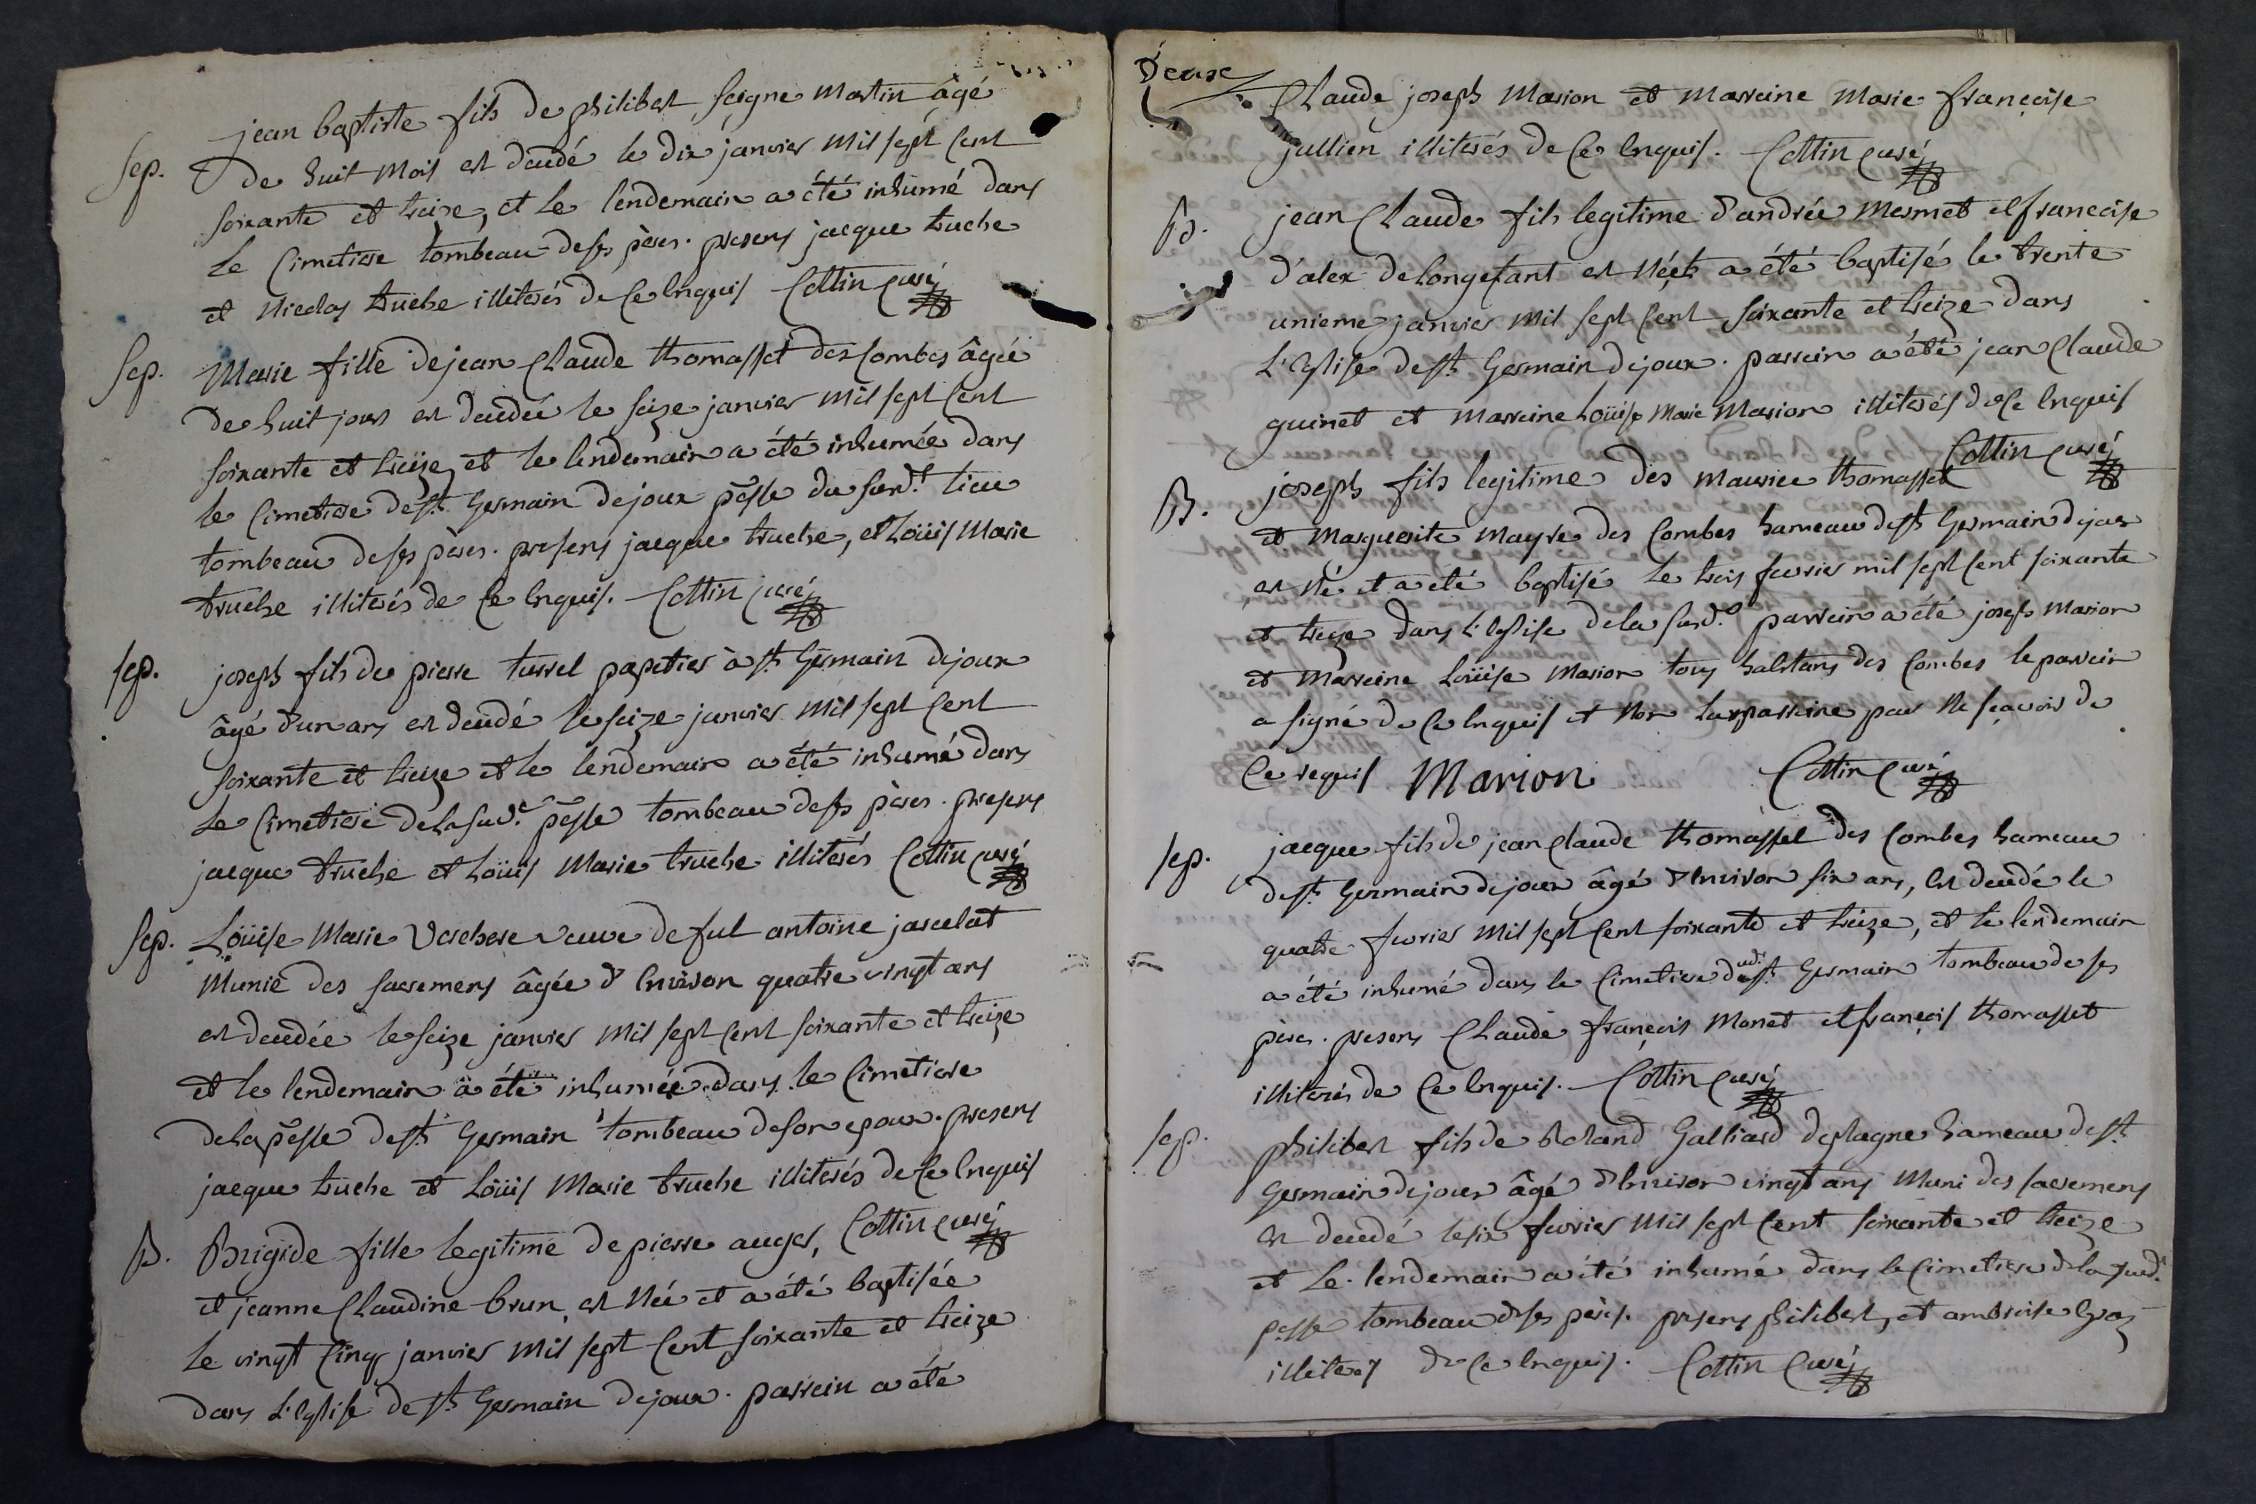 jean baptiste fils de philibert seigne martin âgé
Sep. de huit mois est decedé le dix janvier mil sept cent
soixante et treize, et le lendemain a été inhumé dans
le cimetiere tombeau de ses pères. presens jacque truche
et nicolas truche illiterés de ce enquis Cottin curé
Sep. Marie fille de jean claude thomasset des combes âgée
de huit jours est decedée le seize janvier mil sept cent
soixante et treize et le lendemain a été inhumée dans
le cimetiere de st. Germain dejoux psse du surd.t lieu
tombeau de ses pères. presens jacque truche, et Loüis Marie
truche illiterés de ce enquis. Cottin curé
sep. joseph fils de pierre turrel papetier à st Germain dejoux
âgé d'un ans est decedé le seize janvier mil sept cent
soixante et treize et le lendemain a été inhumé dans
le cimetiere de la sud.e psse tombeau de ses pères. presens
jacque truche et Loüis Marie truche illiterés Cottin curé
Sep. Loüise Marie verchere veuve de fut antoine jarcelat
munie des sacremens âgée d'environ quatre vingt ans
est decedée le seize janvier mil sept cent soixante et treize
et le lendemain a été inhumée dans le cimetiere
de la psse de st Germain tombeau de son epoux. presens
jacque truche et Loüis Marie truche illiterés de ce enquis
B. Brigide fille legitime de pierre auger, Cottin curé
et jeanne Claudine brun est née et a été baptisée
le vingt cinq janvier mil sept cent soixante et treize
dans L'eglise de st Germain dejoux. parrein a été
Deuxe
Claude joseph Marion et marreine Marie françoise
jullien illiterés de ce enquis. Cottin curé
B. jean Claude fils legitime d'andrée mermet et françoise
d'alex de longefant est né et a été baptisé le trente
unieme janvier mil sept cent soixante et treize dans
L'eglise de st Germain dejoux. parrein a été jean Claude
guinet et marreine Loüise Marie Marion illiterés de ce enquis
Cottin curé
B. joseph fils legitime des maurice thomasset
et Marguerite mayre des Combes hameau de st Germain dejoux
est né et a été baptisé le trois fevrier mil sept cent soixante
et treize dans L'eglise de la surd.e parrein a été joseph Marion
et marreine Loüise Marion tous habitans des Combes le parrein
a signé de ce enquis et non la marreine par ne sçavoir de
ce requis Marion Cottin curé
sep. jacque fils de jean claude thomasset des Combes hameau
de st. Germain dejoux âgé d'environ six ans, est decedé le
quatre fevrier mil sept cent soixante et treize, et le lendemain
a été inhumé dans le cimetiere dudt st. Germain tombeau de ses
pères. presens Claude françois Monet et françois thomasset
illiterés de ce enquis. Cottin curé
sep. philibert fils de Roland Galliard de plagne hameau de st
Germain dejoux âgé d'environ vingt ans muni des sacremens
est decedé le six fevrier mil sept cent soixante et treize
et le lendemain a été inhumé dans le cimetiere de la surd.e
psse tombeau de ses pères. presens philibert, et ambroise
illiterés de ce enquis. Cottin curé